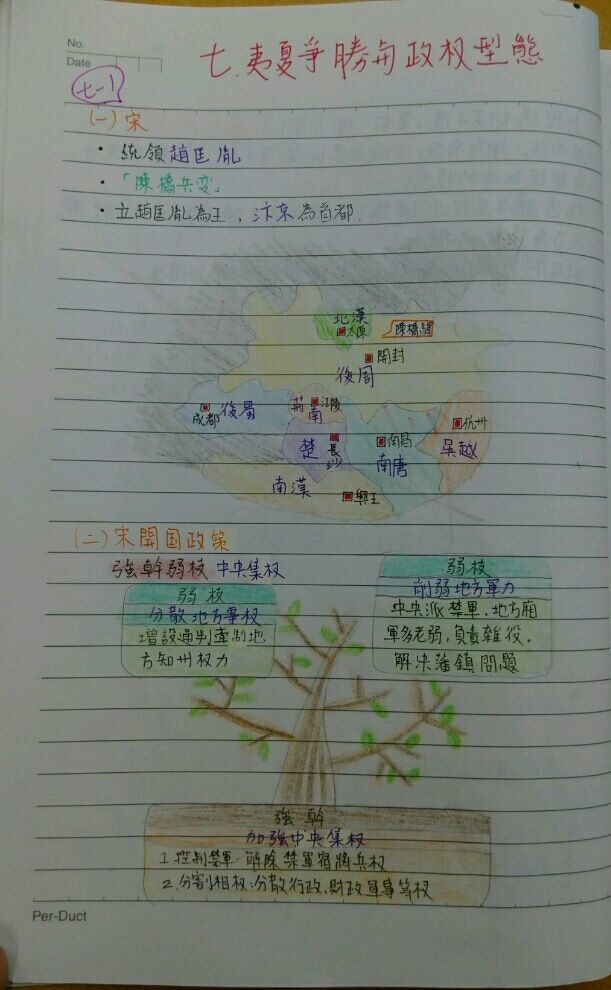 No.
Date
七.夷夏爭勝與政权型態
七-1
(一)宋
• 統領趙匡胤
• 「陳橋兵变」
• 立趙匡胤為王,汴京為首都.
北漢
太原
陳橋驛
開封
後周
成都
後蜀
荊南
江陵
杭州
吳越
楚
長沙
南昌
南唐
南漢
興王
(二)宋開国政策
強幹弱枝 中央集权
弱枝
分散地方事权
增設通判牽制地
方知州权力
弱枝
削弱地方軍力
中央派禁軍.地方廂
軍多老弱,負責雜役.
解决藩鎮問題
強幹
加強中央集权
1.控制禁軍 解除禁軍宿將兵权
2.分割相权:分散行政、財政軍事等权
Per-Duct